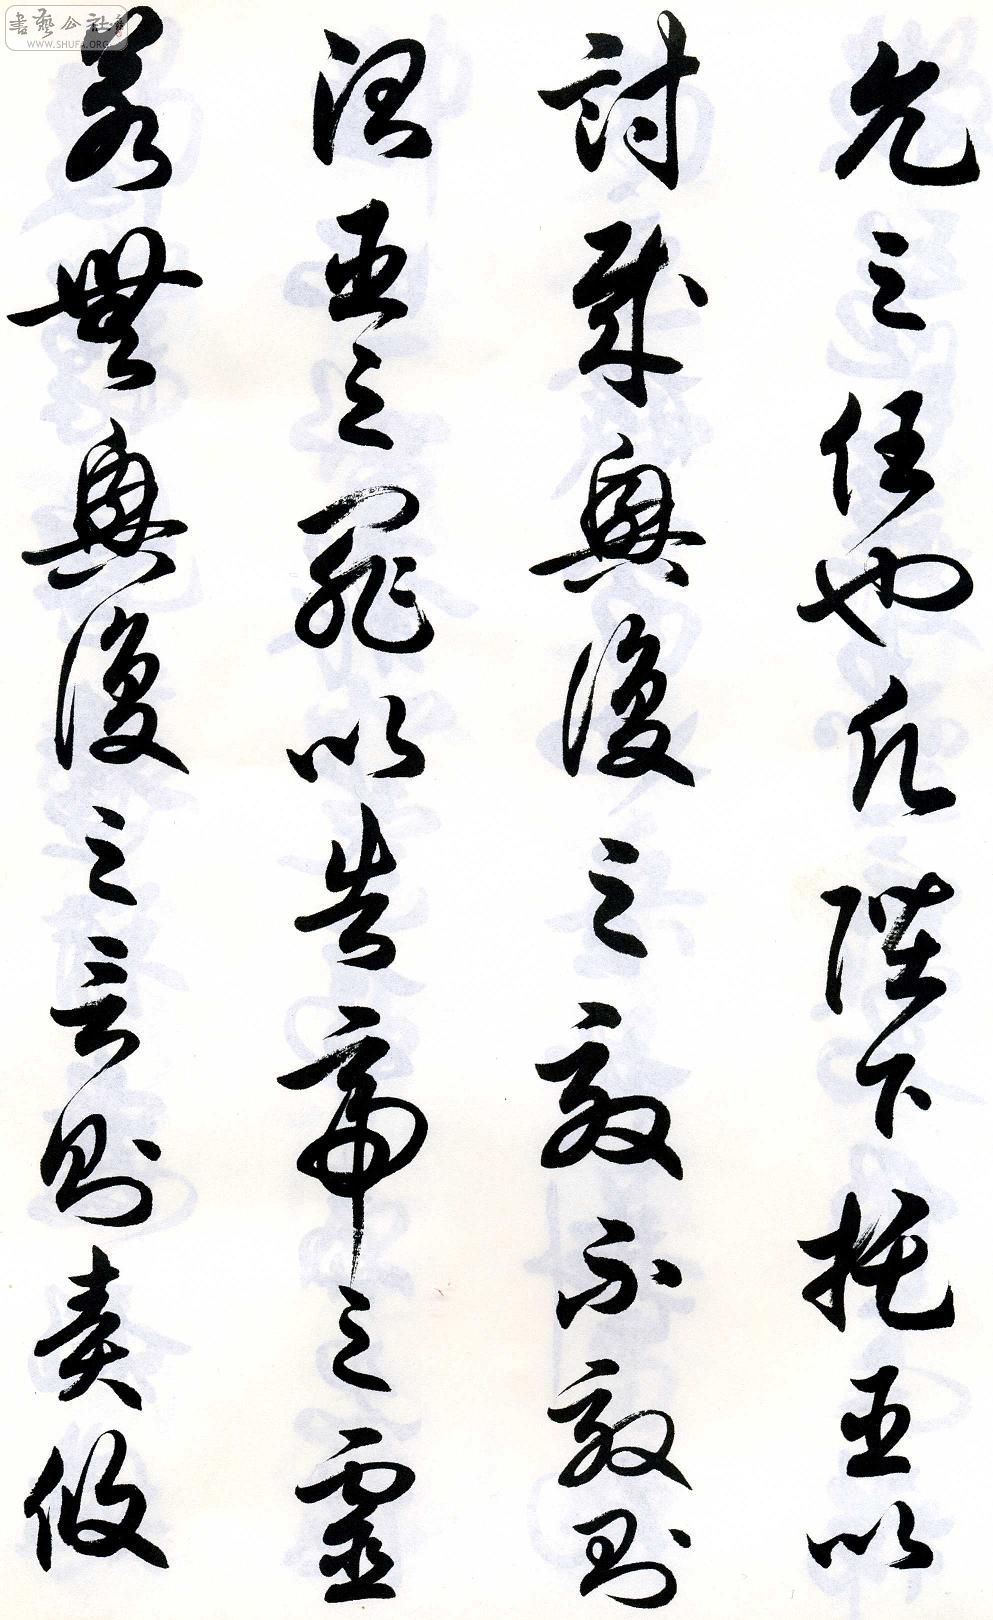 允之任也願陛下托臣以
討賊興復之效不效則
治臣之罪以告帝之靈
若無興復之言則責攸
書藝公社
WWW.SHUFA.ORG